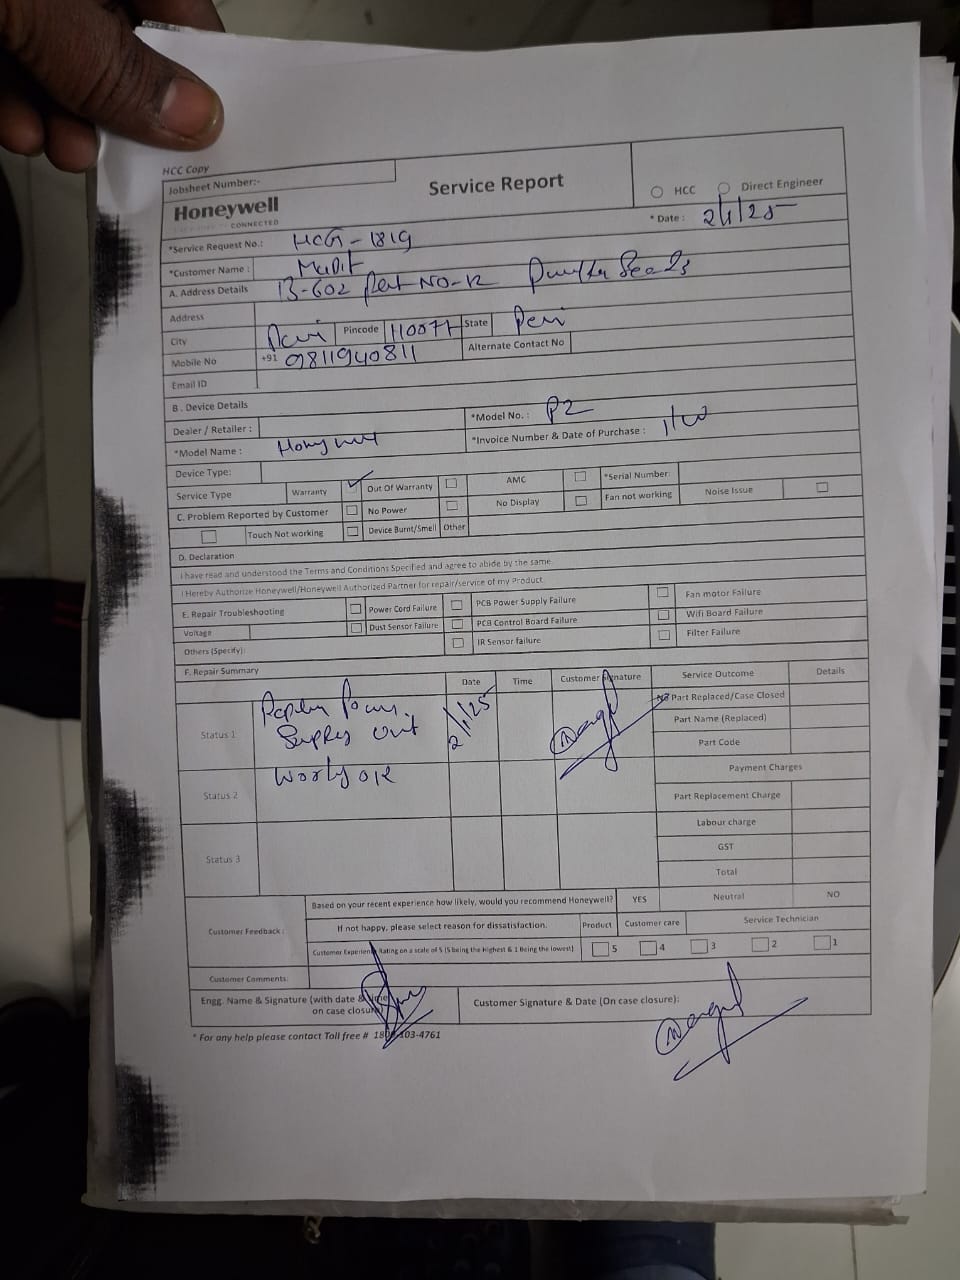 HCC Copy
Jobsheet Number:-
Service Report
HCC Direct Engineer
Honeywell
CONNECTED
* Date : 2/1/25
*Service Request No.: HCG-1819
*Customer Name :
A. Address Details B-602
Address
City Pincode 110077 State
Mobile No +91 9811940811 Alternate Contact No
Email ID
B . Device Details
Dealer / Retailer : *Model No. : P2
*Model Name : *Invoice Number & Date of Purchase :
Device Type:
Service Type Warranty ✓ Out Of Warranty AMC *Serial Number:
C. Problem Reported by Customer No Power No Display Fan not working Noise Issue
Touch Not working Device Burnt/Smell Other
D. Declaration
I have read and understood the Terms and Conditions Specified and agree to abide by the same.
I Hereby Authorize Honeywell/Honeywell Authorized Partner for repair/service of my Product
E. Repair Troubleshooting Power Cord Failure PCB Power Supply Failure Fan motor Failure
Voltage Dust Sensor Failure PCB Control Board Failure Wifi Board Failure
Others (Specify): IR Sensor failure Filter Failure
F. Repair Summary Date Time Customer Signature Service Outcome Details
Status 1 2/1/25 Part Replaced/Case Closed
Supply unit Part Name (Replaced)
Part Code
Status 2 ok Payment Charges
Part Replacement Charge
Labour charge
Status 3 GST
Total
Customer Feedback : Based on your recent experience how likely, would you recommend Honeywell? YES Neutral NO
If not happy, please select reason for dissatisfaction. Product Customer care Service Technician
Customer Experience Rating on a scale of 5 (5 being the highest & 1 Being the lowest) 5 4 3 2 1
Customer Comments:
Engg. Name & Signature (with date & time on case closure) Customer Signature & Date (On case closure):
* For any help please contact Toll free # 103-4761